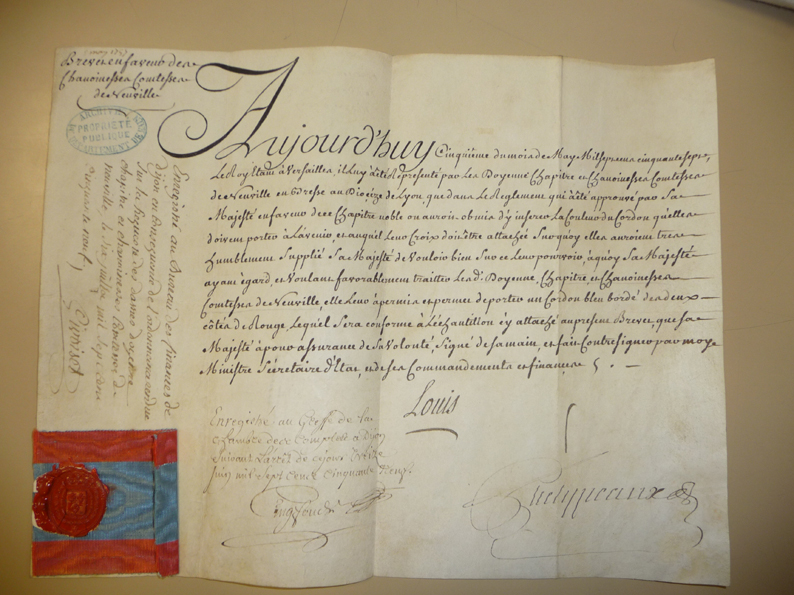 Brevet en faveur des
Chanoinesses Comtesses
de Neuville
ARCHIVES
PROPRIÉTÉ
PUBLIQUE
DEPARTEMENT DE
Aujourd'huy Cinquieme du mois de May Mil sept cens cinquante sept,
Le Roy étant à Versailles, il luy a été Representé par Les Doyenne Chapitre et Chanoinesses Comtesses
de Neuville en Bresse au Diocèze de Lyon, que dans Le Reglement qui à été approuvé par Sa
Majesté en faveur de ce Chapitre noble on auroit obmis d'y inserer La Couleur du Cordon qu'elles
doivent porter à L'avenir, et auquel Leur Croix doit être attaché Surquoy elles auroient tres
humblement Supplié Sa Majesté de Vouloir bien Sur ce Leur pourvoir, à quoy Sa Majesté
ayant égard, et Voulant favorablement traitter Lesd. Doyenne, Chapitre et Chanoinesses
Comtesses de Neuville, elle Leur à permis et permet de porter un Cordon bleu bordé des deux
côtés de Rouge, Lequel Sera conforme à L'échantillon cy attaché au present Brevet, que Sa
Majesté à pour assurance de Sa Volonté, Signé de Sa main, et fait Contresigner par moy
Ministre Sécretaire d'Etat, et de ses Commandements et finances
Louis
Enregistré au Greffe de la
Chambre des Comptes à Dijon
Suivant L'arrêt de ce jour
juin mil Sept Cent Cinquante
Phelypeaux
Enregistré au Bureau des finances de
Dijon en Consequence de l'ordonnance rendue
Sur la Requete des dames doyenne
chapitre et chanoinesses Comtesses de
neuville le mil sept cent
cinquante neuf